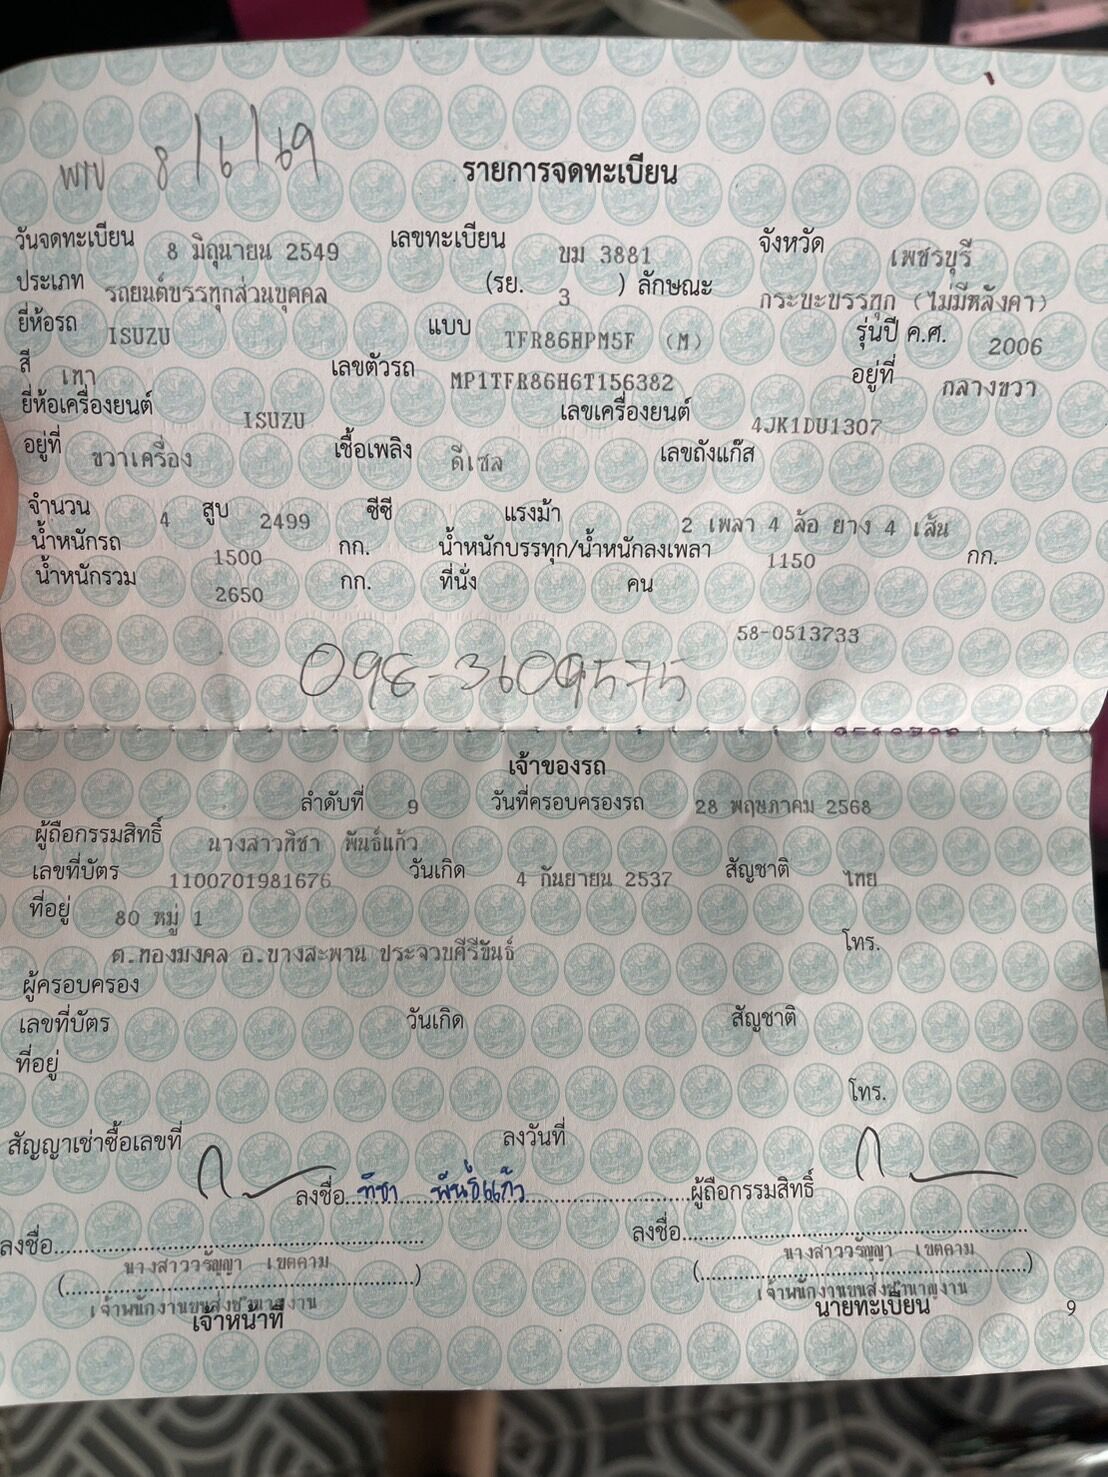 พรบ 8/6/69
รายการจดทะเบียน
วันจดทะเบียน 8 มิถุนายน 2549 เลขทะเบียน ขม 3881 จังหวัด เพชรบุรี
ประเภท รถยนต์บรรทุกส่วนบุคคล (รย. 3 ) ลักษณะ กระบะบรรทุก (ไม่มีหลังคา)
ยี่ห้อรถ ISUZU แบบ TFR86HPM5F (M) รุ่นปี ค.ศ. 2006
สี เทา เลขตัวรถ MP1TFR86H6T156382 อยู่ที่ กลางขวา
ยี่ห้อเครื่องยนต์ ISUZU เลขเครื่องยนต์ 4JK1DU1307
อยู่ที่ ขวาเครื่อง เชื้อเพลิง ดีเซล เลขถังแก๊ส
จำนวน 4 สูบ 2499 ซีซี แรงม้า 2 เพลา 4 ล้อ ยาง 4 เส้น
น้ำหนักรถ 1500 กก. น้ำหนักบรรทุก/น้ำหนักลงเพลา 1150 กก.
น้ำหนักรวม 2650 กก. ที่นั่ง คน
58-0513733
098-3609575
เจ้าของรถ
ลำดับที่ 9 วันที่ครอบครองรถ 28 พฤษภาคม 2568
ผู้ถือกรรมสิทธิ์ นางสาวทิชา พันธ์แก้ว
เลขที่บัตร 1100701981676 วันเกิด 4 กันยายน 2537 สัญชาติ ไทย
ที่อยู่ 80 หมู่ 1
ต.ทองมงคล อ.บางสะพาน ประจวบคีรีขันธ์ โทร.
ผู้ครอบครอง
เลขที่บัตร วันเกิด สัญชาติ
ที่อยู่
โทร.
สัญญาเช่าซื้อเลขที่ ลงวันที่
ลงชื่อ ทิชา พันธ์แก้ว ผู้ถือกรรมสิทธิ์
ลงชื่อ ลงชื่อ
(นางสาววรัญญา เขตคาม) (นางสาววรัญญา เขตคาม)
เจ้าพนักงานขนส่งชำนาญงาน เจ้าพนักงานขนส่งชำนาญงาน
เจ้าหน้าที่ นายทะเบียน 9